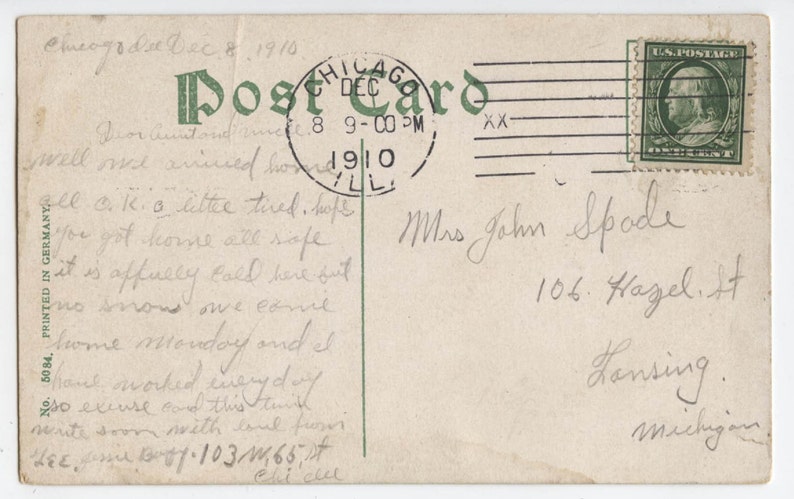 Chicago Ill Dec 8, 1910
Post Card
CHICAGO
DEC
8 9-00 PM
1910
ILL.
XX
U.S. POSTAGE
ONE CENT
Dear Aunt and uncle.
well we arrived home
all O.K. a little tired. hope
you got home all safe
it is affully cald here but
no snow we came
home Monday and I
have worked everyday
so excuse card this time
write soon with love from
103 W. 65, St
Chi Ill
Mrs John Spade
106 Hazel. St
Lansing.
Michigan.
No. 5084. PRINTED IN GERMANY.